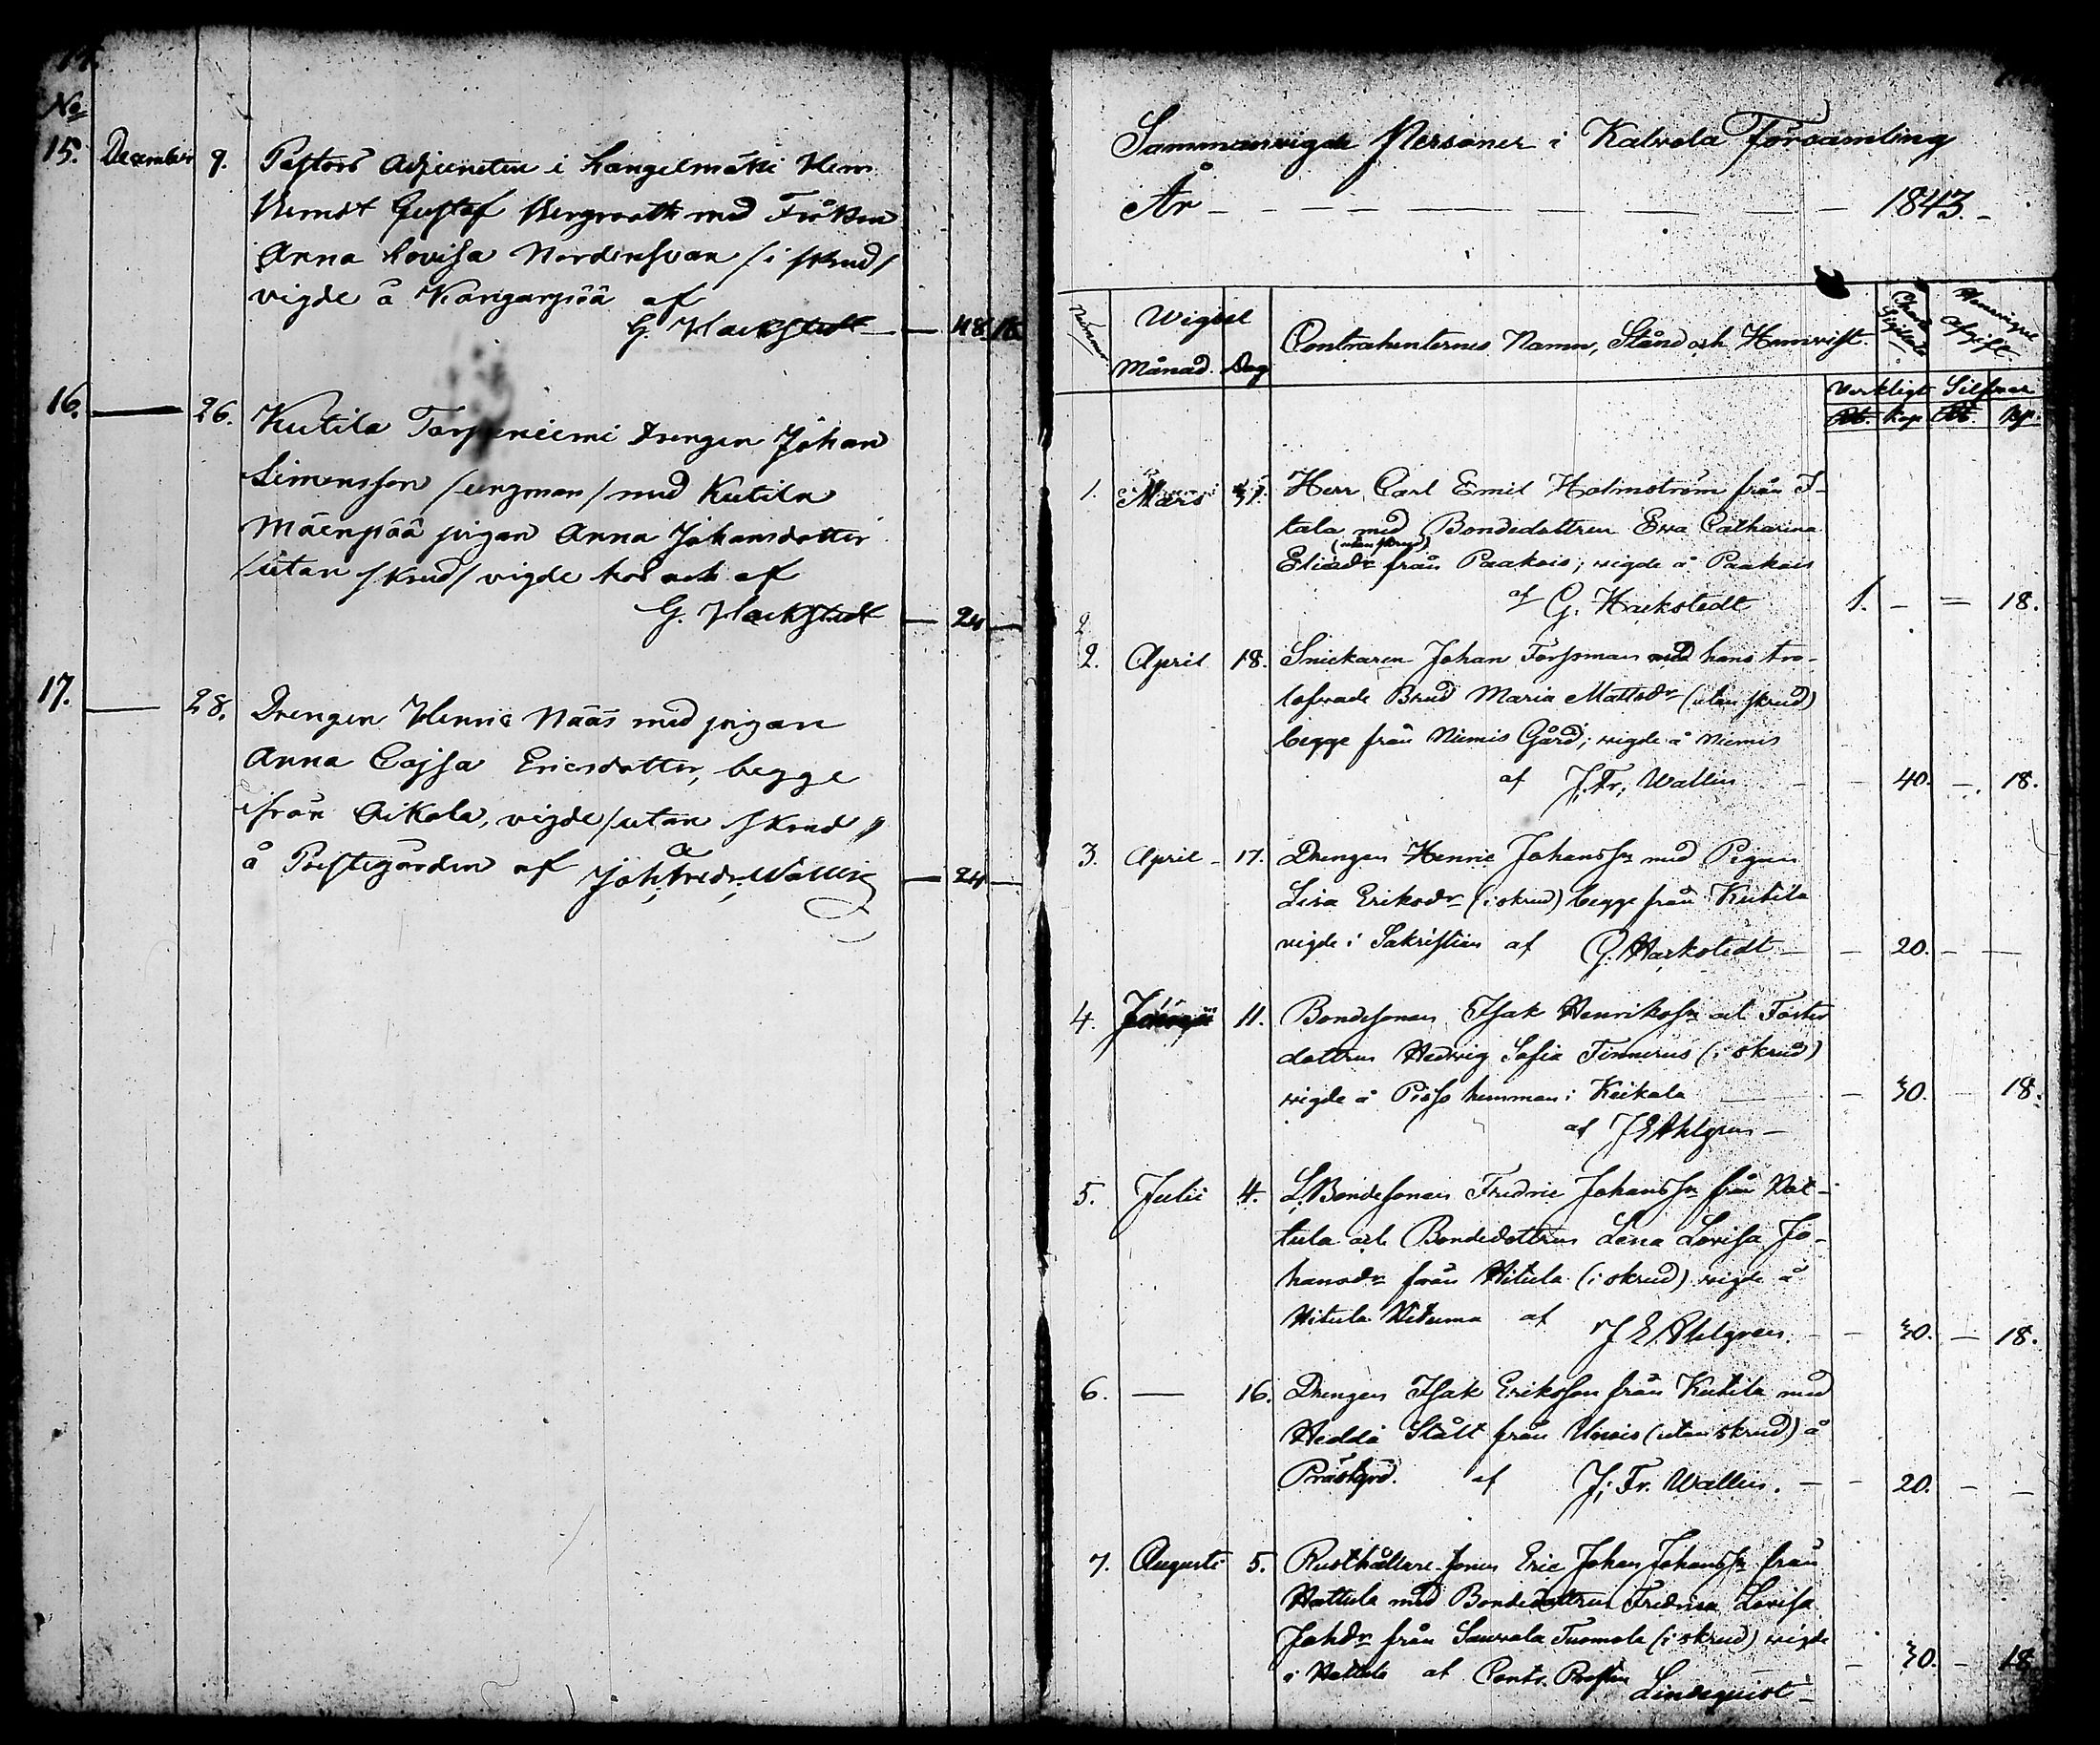 No
15. December 9. Pastors Adjuncten i Längelmäki Herr
Berndt Gustaf Bergroth med Fröken
Anna Lovisa Nordensvan /i skrud/
vigde å Kangaspää af
G. Hackstedt — 48. 18.
16. — 26. Kutila Torpeniemi Drengen Johan
Simonsson /ungman/ med Kutila
Mäenpää pigan Anna Johansdotter
/utan skrud/ vigde hos och af
G. Hackstedt — 24 —
17. — 28. Drengen Henric Nääs med pigan
Anna Cajsa Ericsdotter, begge
ifrån Oikola, vigde /utan skrud/
å Prestegården af Joh. Fredr. Wallin — 24 —
Sammanvigde Personer i Kalvola Församling
År — 1843.
Nummer Wigsel Contrahenternes Namn, Stånd och Hemvist. Charta Sigillata Hemvigsel afgift.
Månad. Dag
Verkligt Silfver
Rb. Kop. Rb. Kop.
1. Mars 31. Herr Carl Emil Holmström från I-
tala med Bondedottren Eva Catharina
(utan skrud)
Eliædr från Paakois; vigde å Paakois
af G. Hackstedt 1. — = 18.
2
2. April 18. Snickaren Johan Forssman med hans tro-
lofvade Brud Maria Mattsdr (utan skrud)
begge från Niemis Gård; vigde å Niemis
af J. Fr. Wallin — 40. — 18.
3. April — 17. Drengen Henric Johanss. med Pigan
Lisa Eriksdr (i skrud) begge från Kutila
vigde i Sakristian af G. Hackstedt — 20. — —
4. 11. Bondesonen Isak Henrikss. och Foster
dottren Hedvig Sofia Finnerus (i skrud)
vigde å Piøsø hemman i Keikala — 30. — 18.
af J E Ahlgren —
5. Julii 4. L. Bondesonen Fredric Johanss. från Vat-
tula och Bondedottren Lena Lovisa Jo-
hansdr från Hitula (i skrud) vigde å
Hitula af J E Ahlgren. — 30. — 18.
6. — 16. Drengen Isak Eriksson från Kutila med
Hedda Stålt från Unois (utan skrud) å
Prästgrd. af J. Fr. Wallin. — 20. — —
7. Augusti 5. Rusthållare sonen Eric Johan Johanss. från
Hattula med Bondedottren Fredrica Lovisa
Johdr från Sauvala Tuomola (i skrud) vigde
i Hattula af Contr. Prosten — 30. — 18
Lindequist —